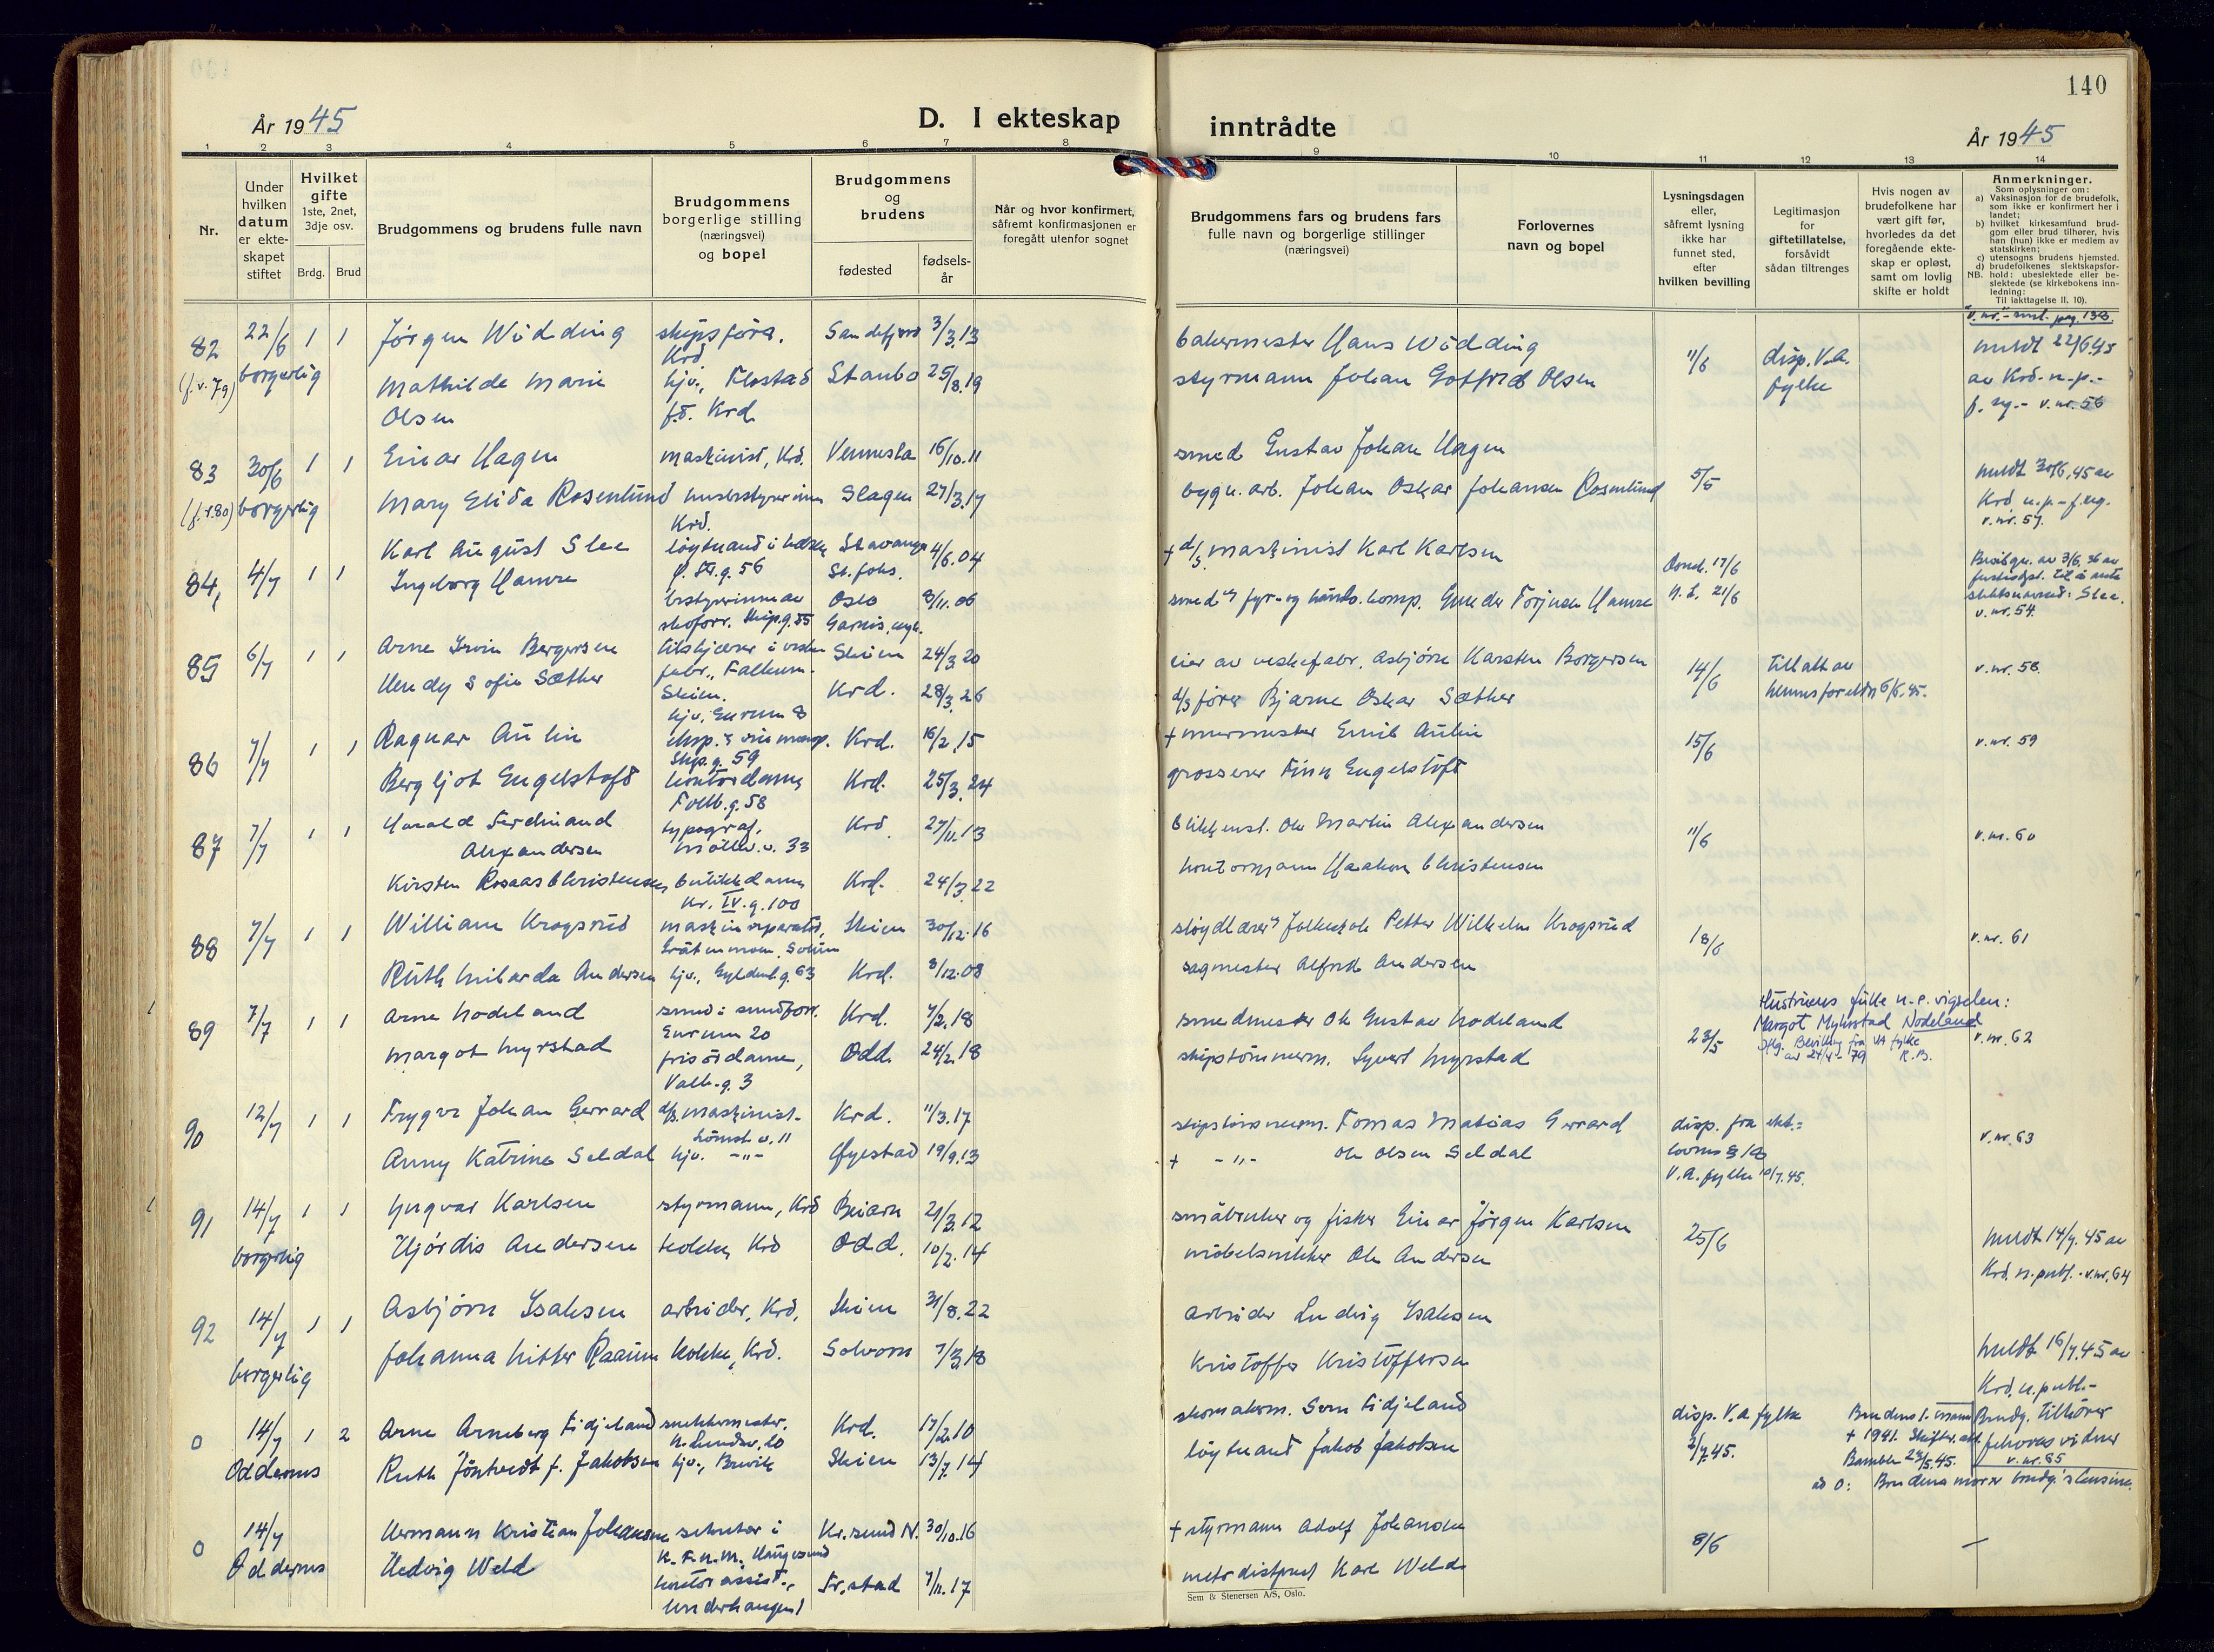 140
År 1945
D. I ekteskap
inntrådte
År 1945
1 2 3 4 5 6 7 8 9 10 11 12 13 14
Nr.
Under hvilken datum er ekteskapet stiftet
Hvilket gifte
1ste, 2net, 3dje osv.
Brdg. Brud
Brudgommens og brudens fulle navn
Brudgommens borgerlige stilling (næringsvei) og bopel
Brudgommens og brudens
fødested
fødselsår
Når og hvor konfirmert, såfremt konfirmasjonen er foregått utenfor sognet
Brudgommens fars og brudens fars fulle navn og borgerlige stillinger (næringsvei)
Forlovernes navn og bopel
Lysningsdagen eller, såfremt lysning ikke har funnet sted, efter hvilken bevilling
Legitimasjon for giftetillatelse, forsåvidt sådan tiltrenges
Hvis nogen av brudefolkene har vært gift før, hvorledes da det foregående ekteskap er opløst, samt om lovlig skifte er holdt
Anmerkninger.
Som oplysninger om:
a) Vaksinasjon for de brudefolk, som ikke er konfirmert her i landet;
b) hvilket kirkesamfund brudgom eller brud tilhører, hvis han (hun) ikke er medlem av statskirken;
c) utensogns brudens hjemsted.
d) brudefolkenes slektskapsforhold: ubeslektede eller beslektede (se kirkebokens innledning:
NB. Til iakttagelse II, 10).
82 22/6 1 1 Jørgen Wïdding skipsfører. Sandefjord 3/3.13
Krd
bakermester Hans Wïdding 11/6 disp. V.A. fylke meldt 22/6.45
(f.v. 79) borgerlig Mathilde Marie Olsen hjv., Flostad Staubo 25/8.19
f.t. Krd
styrmann Johan Gotfred Olsen av Krd. n.p.-
v.nr. 56
83 30/6 1 1 Einar Hagen maskinist, Krd. Vennesla 16/10.11
smed Gustav Johan Hagen 5/5 meldt 30/6.45 av
borgerlig Mary Elida Rosenlund husbestyrerinne Slagen 27/3.17
Krd.
bygn.arb. Johan Oskar Johansen Rosenlund Krd. n.p.
v.nr. 57.
84, 4/7 1 1 Karl August Slee Stavanger 4/6.04
+ d/s. maskinist Karl Karlsen
Ingeborg Hamre Oslo 8/11.06
v.nr. 54.
85 6/7 1 1 Arne Irvin Borgersen Skien 24/3 20
Falkum, Skien.
eier av veskefabr. Asbjørn Karsten Borgersen 14/6 v.nr. 58
Wendy Sofie Sæther Krd. 28/3.26
d/s fører Bjarne Oskar Sæther
86 7/7 1 1 Ragnar Aulin Krd. 16/2.15
Skip.g. 59
+ murmester Emil Aulin 15/6 v.nr. 59
Bergljot Engelstoft kontordame Krd. 25/3.24
grosserer Finn Engelstoft
87 7/7 1 1 Harald Ferdinand Alexandersen typograf, Krd 27/11.13
blikkensl. Ole Martin Alexandersen 11/6 v.nr. 60
Kirsten Rosaas Christensen butikkdame Krd. 24/3.22
Kr. IV.g. 100
kontormann Haakon Christensen
88 7/7 1 1 William Krogsrud maskinreparatør, Skien 30/12.16
sløydlærer v/ folkeskole Petter Wilhelm Krogsrud 18/6 v.nr. 61
Ruth Milarda Andersen hjv., Gyldenl.g. 63 Krd. 8/12.08
sagmester Alfred Andersen
89 7/7 1 1 Arne Nodeland Krd. 7/2.18
smedmester Ole Gustav Nodeland 23/5 v.nr. 62
Hustruens fulle n. e. vigselen:
Margot Myhrstad Nodeland
iflg. Bevilling fra VA fylke
av 24/4-79 K.B.
Margot Myrstad frisørdame, Odd. 24/2.18
skipstømmerm. Syvert Myrstad
90 12/7 1 1 Trygve Johan Gerrard d/s. maskinist. Krd. 11/3.17
skipstømmerm. Tomas Matias Gerrard disp. fra ekt.=
Anny Katrine Seldal hjv. -"- Øyestad 19/9.13
+ -"- Ole Olsen Seldal lovens § 18 v.nr. 63
V.A. fylke 10/7.45.
91 14/7 1 1 Yngvar Karlsen styrmann, Krd Beiarn 21/3.12
småbruker og fisker Einar Jørgen Karlsen 25/6 meldt 14/7.45 av
borgerlig Hjørdis Andersen kokke, Krd Odd. 10/2.14
møbelsnekker Ole Andersen Krd. n. publ. - v.nr. 64
92 14/7 1 1 Asbjørn Isaksen arbeider, Krd. Skien 31/8.22
arbeider Ludvig Isaksen meldt 16/7.45 av
borgerlig Johanna Mitter Raaum kokke, Krd. Solvorn 7/3.18
Kristoffer Kristoffersen Krd. n. publ.-
0 14/7 1 2 Arne Arneberg Tidjeland snekkermester. Krd. 17/2.10
skomakerm. Sven Tidjeland disp. V.A fylke 2/7.45.
Brudens 1. mann + 1941. Skifter.att. Bamble 24/5.45. Brudg. tilhører Jehovas vidner
v.nr. 65
Oddernes Ruth Jöntvedt f. Jakobsen hjv., Brevik Skien 13/7.14
løytnant Jakob Jakobsen
ad 0: Brudens mor er brudg.'s kusine.
0 14/7 Hermann Kristian Johansen sekretær i Kr.sund N. 30/10.16
K.F.U.M. Haugesund
+ styrmann Adolf Johansen 8/6 –
Oddernes Hedvig Weld kontorassist., Fr.stad 7/11.17
metodistprest Karl Weld
Sem & Stenersen A/S, Oslo.